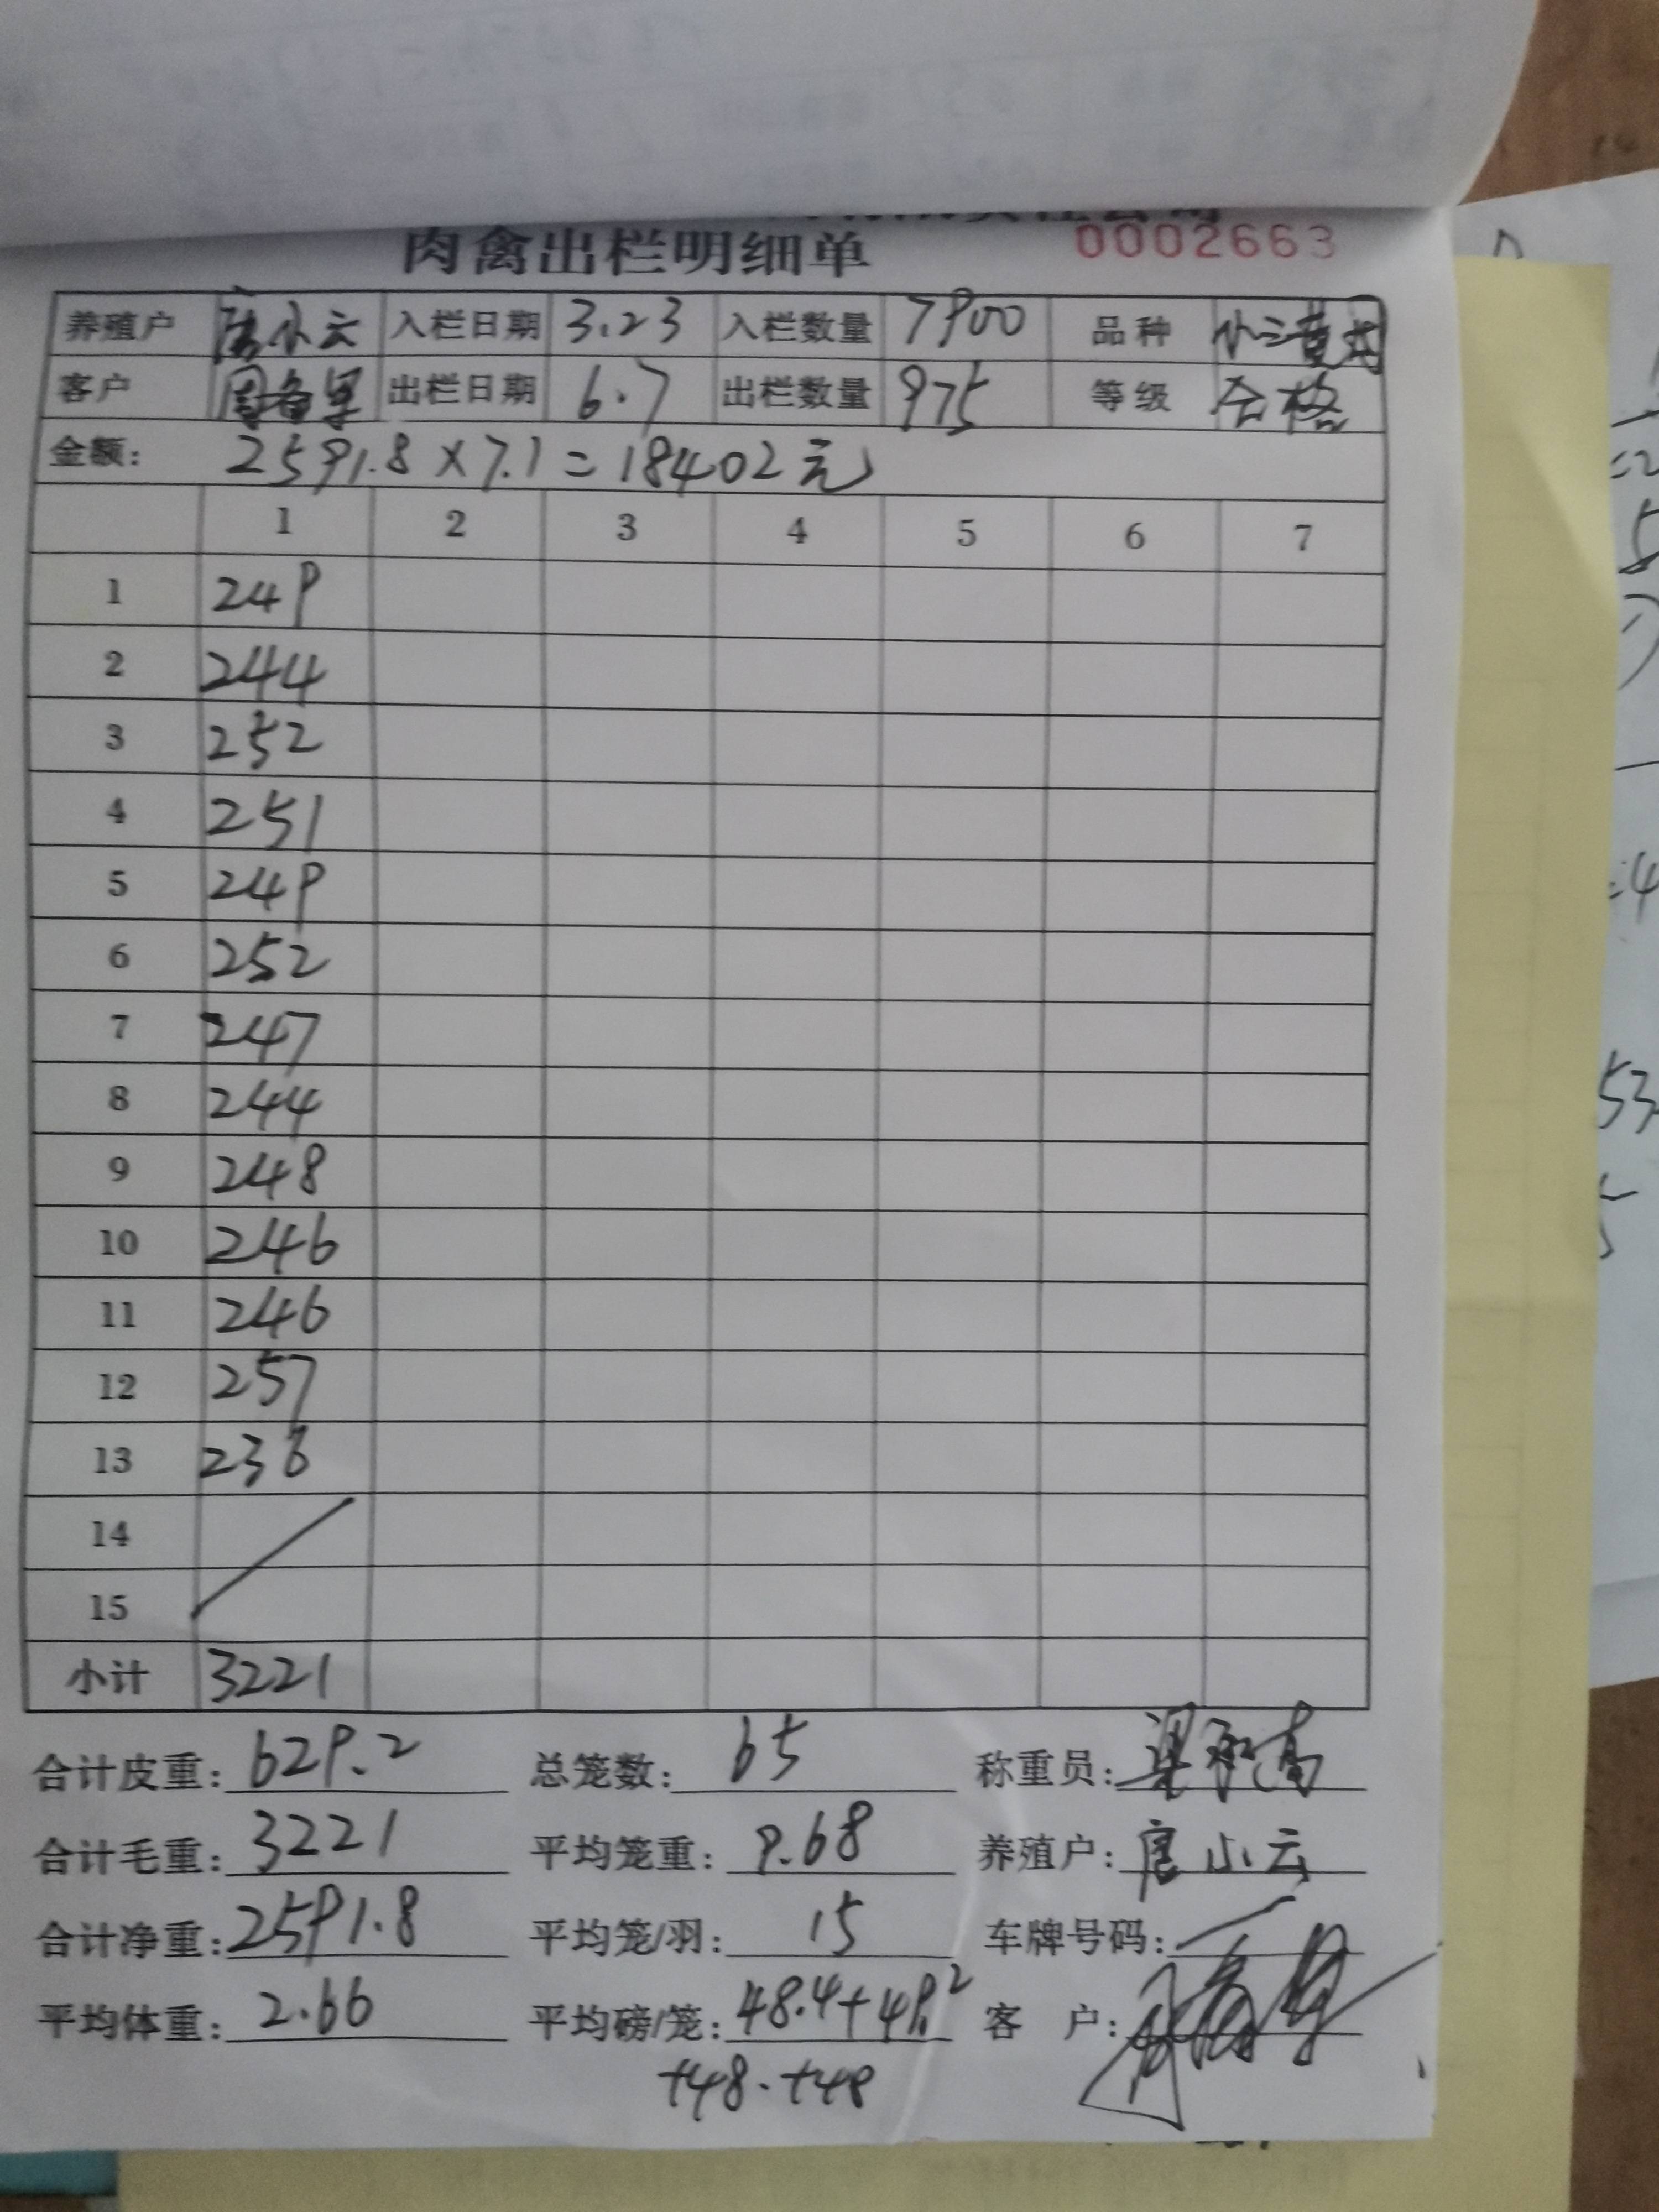 肉禽出栏明细单 0002663
养殖户 唐小云 入栏日期 3.23 入栏数量 7900 品种 小三黄
客户 出栏日期 6.7 出栏数量 975 等级 合格
金额: 2591.8×7.1=18402元
1 2 3 4 5 6 7
1 249
2 244
3 252
4 251
5 249
6 252
7 247
8 244
9 248
10 246
11 246
12 257
13 236
14
15
小计 3221
合计皮重: 629.2 总笼数: 65 称重员:
合计毛重: 3221 平均笼重: 9.68 养殖户: 唐小云
合计净重: 2591.8 平均笼/羽: 15 车牌号码:
平均体重: 2.66 平均磅/笼: 48.4+49.2 客 户:
+48.+49